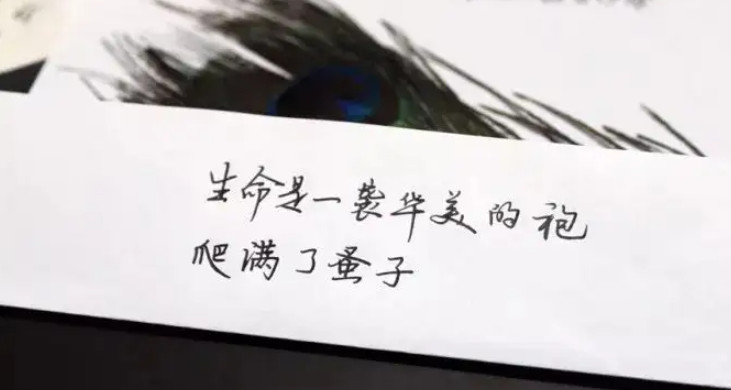 生命是一袭华美的袍
爬满了蚤子